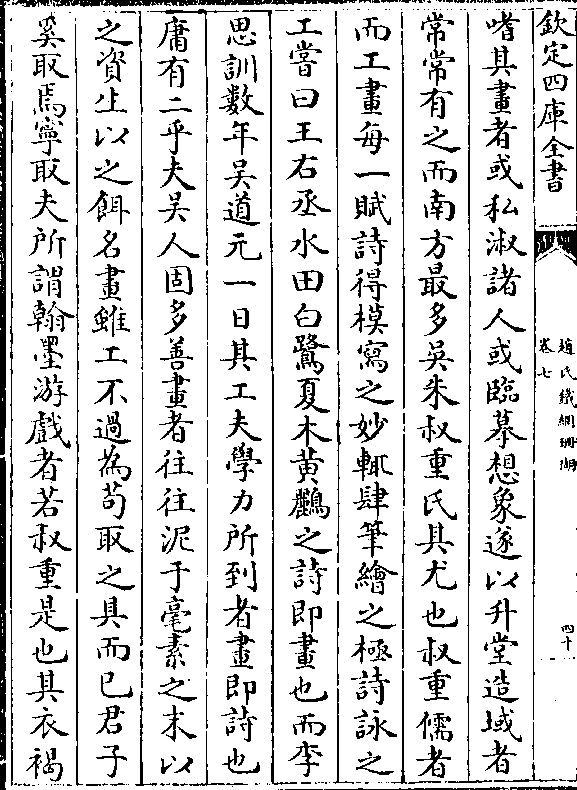 欽定四庫全書
趙氏鐵網珊瑚
卷七
四十
嗜其畫者或私淑諸人或臨摹想象遂以升堂造域者
常常有之而南方最多吳朱叔重氏其尤也叔重儒者
而工畫每一賦詩得模寫之妙輒肆筆繪之極詩詠之
工嘗曰王右丞水田白鷺夏木黃鸝之詩即畫也而李
思訓數年吳道元一日其工夫學力所到者畫即詩也
庸有二乎夫吳人固多善畫者往往泥于毫素之末以
之資生以之餌名畫雖工不過為苟取之具而已君子
奚取焉寧取夫所謂翰墨游戲者若叔重是也其衣褐